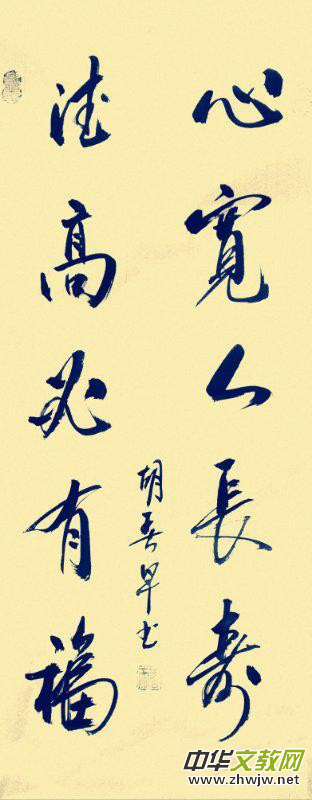 心寬人長壽
德高必有福
胡春早书
中华文教网
www.zhwjw.net